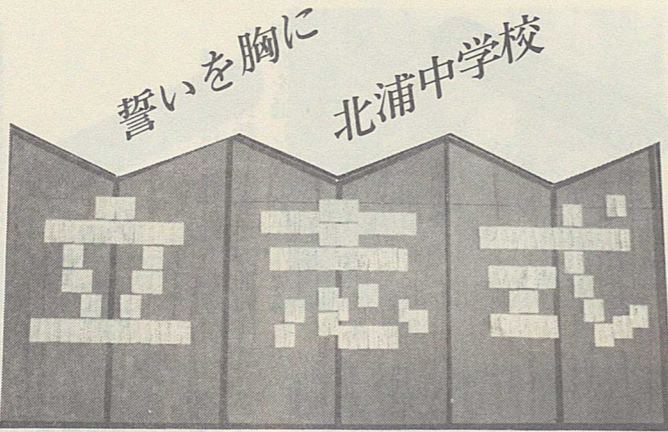 誓いを胸に
北浦中学校
立志式